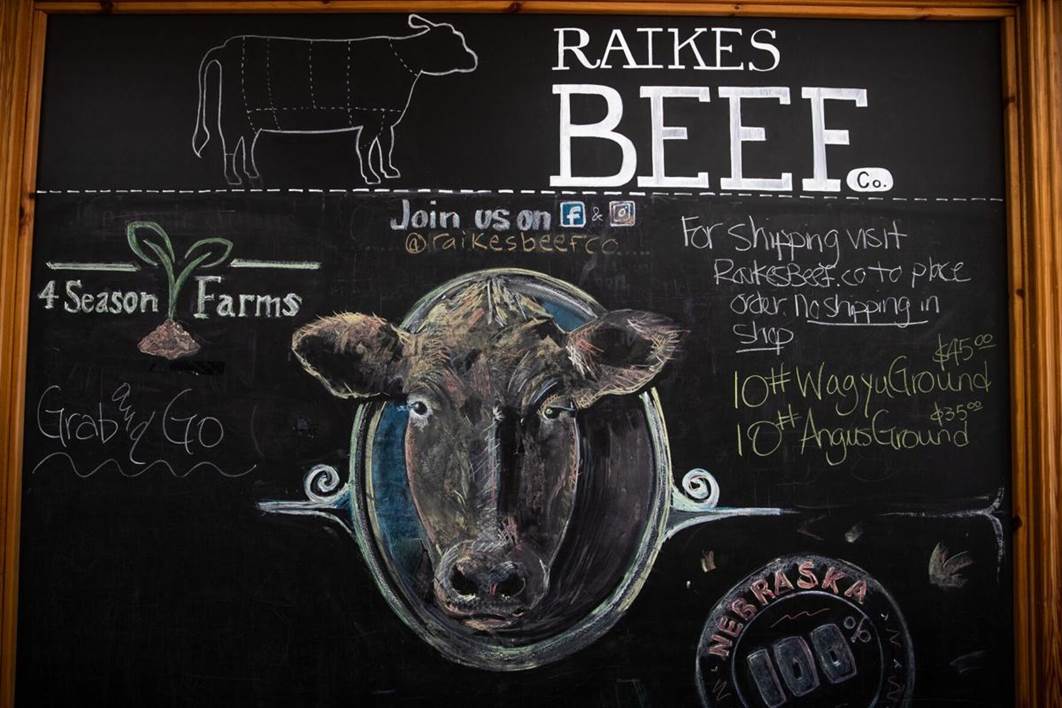 RAIKES
BEEF Co.
Join us on f &
@raikesbeefco
4 Season Farms
Grab and Go
For Shipping visit
RaikesBeef.co to place
order. No shipping in
shop
$45.00
10# Wagyu Ground
$35.00
10# Angus Ground
NEBRASKA
100%